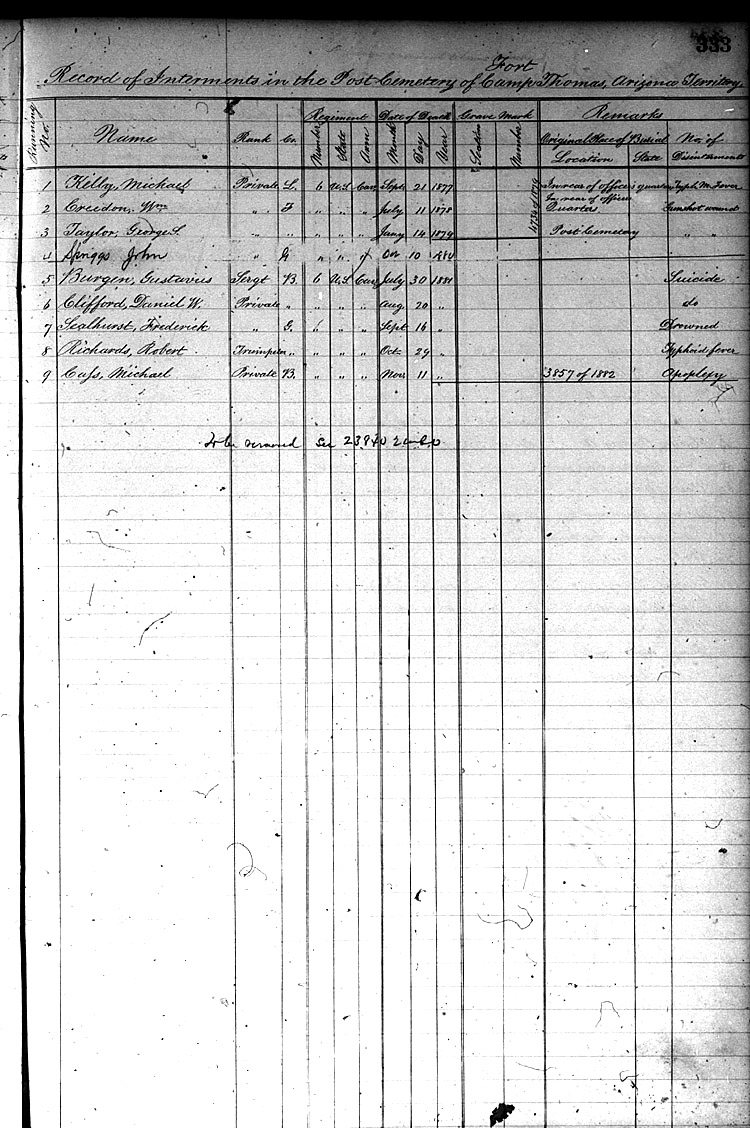 333
Fort
Record of Interments in the Post Cemetery of Camp Thomas, Arizona Territory.
Running No. Name Rank Co. Regiment Number State Arm Date of Death Month Day Year Grave Mark Section Number Remarks Original Place of Burial Location State No. of Disinterments
1 Kelly, Michael Private L. 6 U.S. Cav. Sept. 21 1877 In rear of officers quarters Typh. M. Fever
2 Creedon, Wm " F " " " July 11 1878 In rear of officers Quarters. Gunshot wound
3 Taylor, George S. " " " " " Jany 14 1879 Post Cemetery " "
4734 of 1879
4 Spriggs John " G " " " Oct 10 1880
5 Burgen, Gustavus Sergt B. 6 U.S. Cav. July 30 1881 Suicide
6 Clifford, Daniel W. Private " " " " Aug 20 " do
7 Sealhurst, Frederick " G. " " " Sept 16 " Drowned
8 Richards, Robert Trumpeter " " " " Oct 29 " Typhoid fever
9 Cass, Michael Private B. " " " Nov 11 " 3857 of 1882 Apoplexy
To be removed See 23840